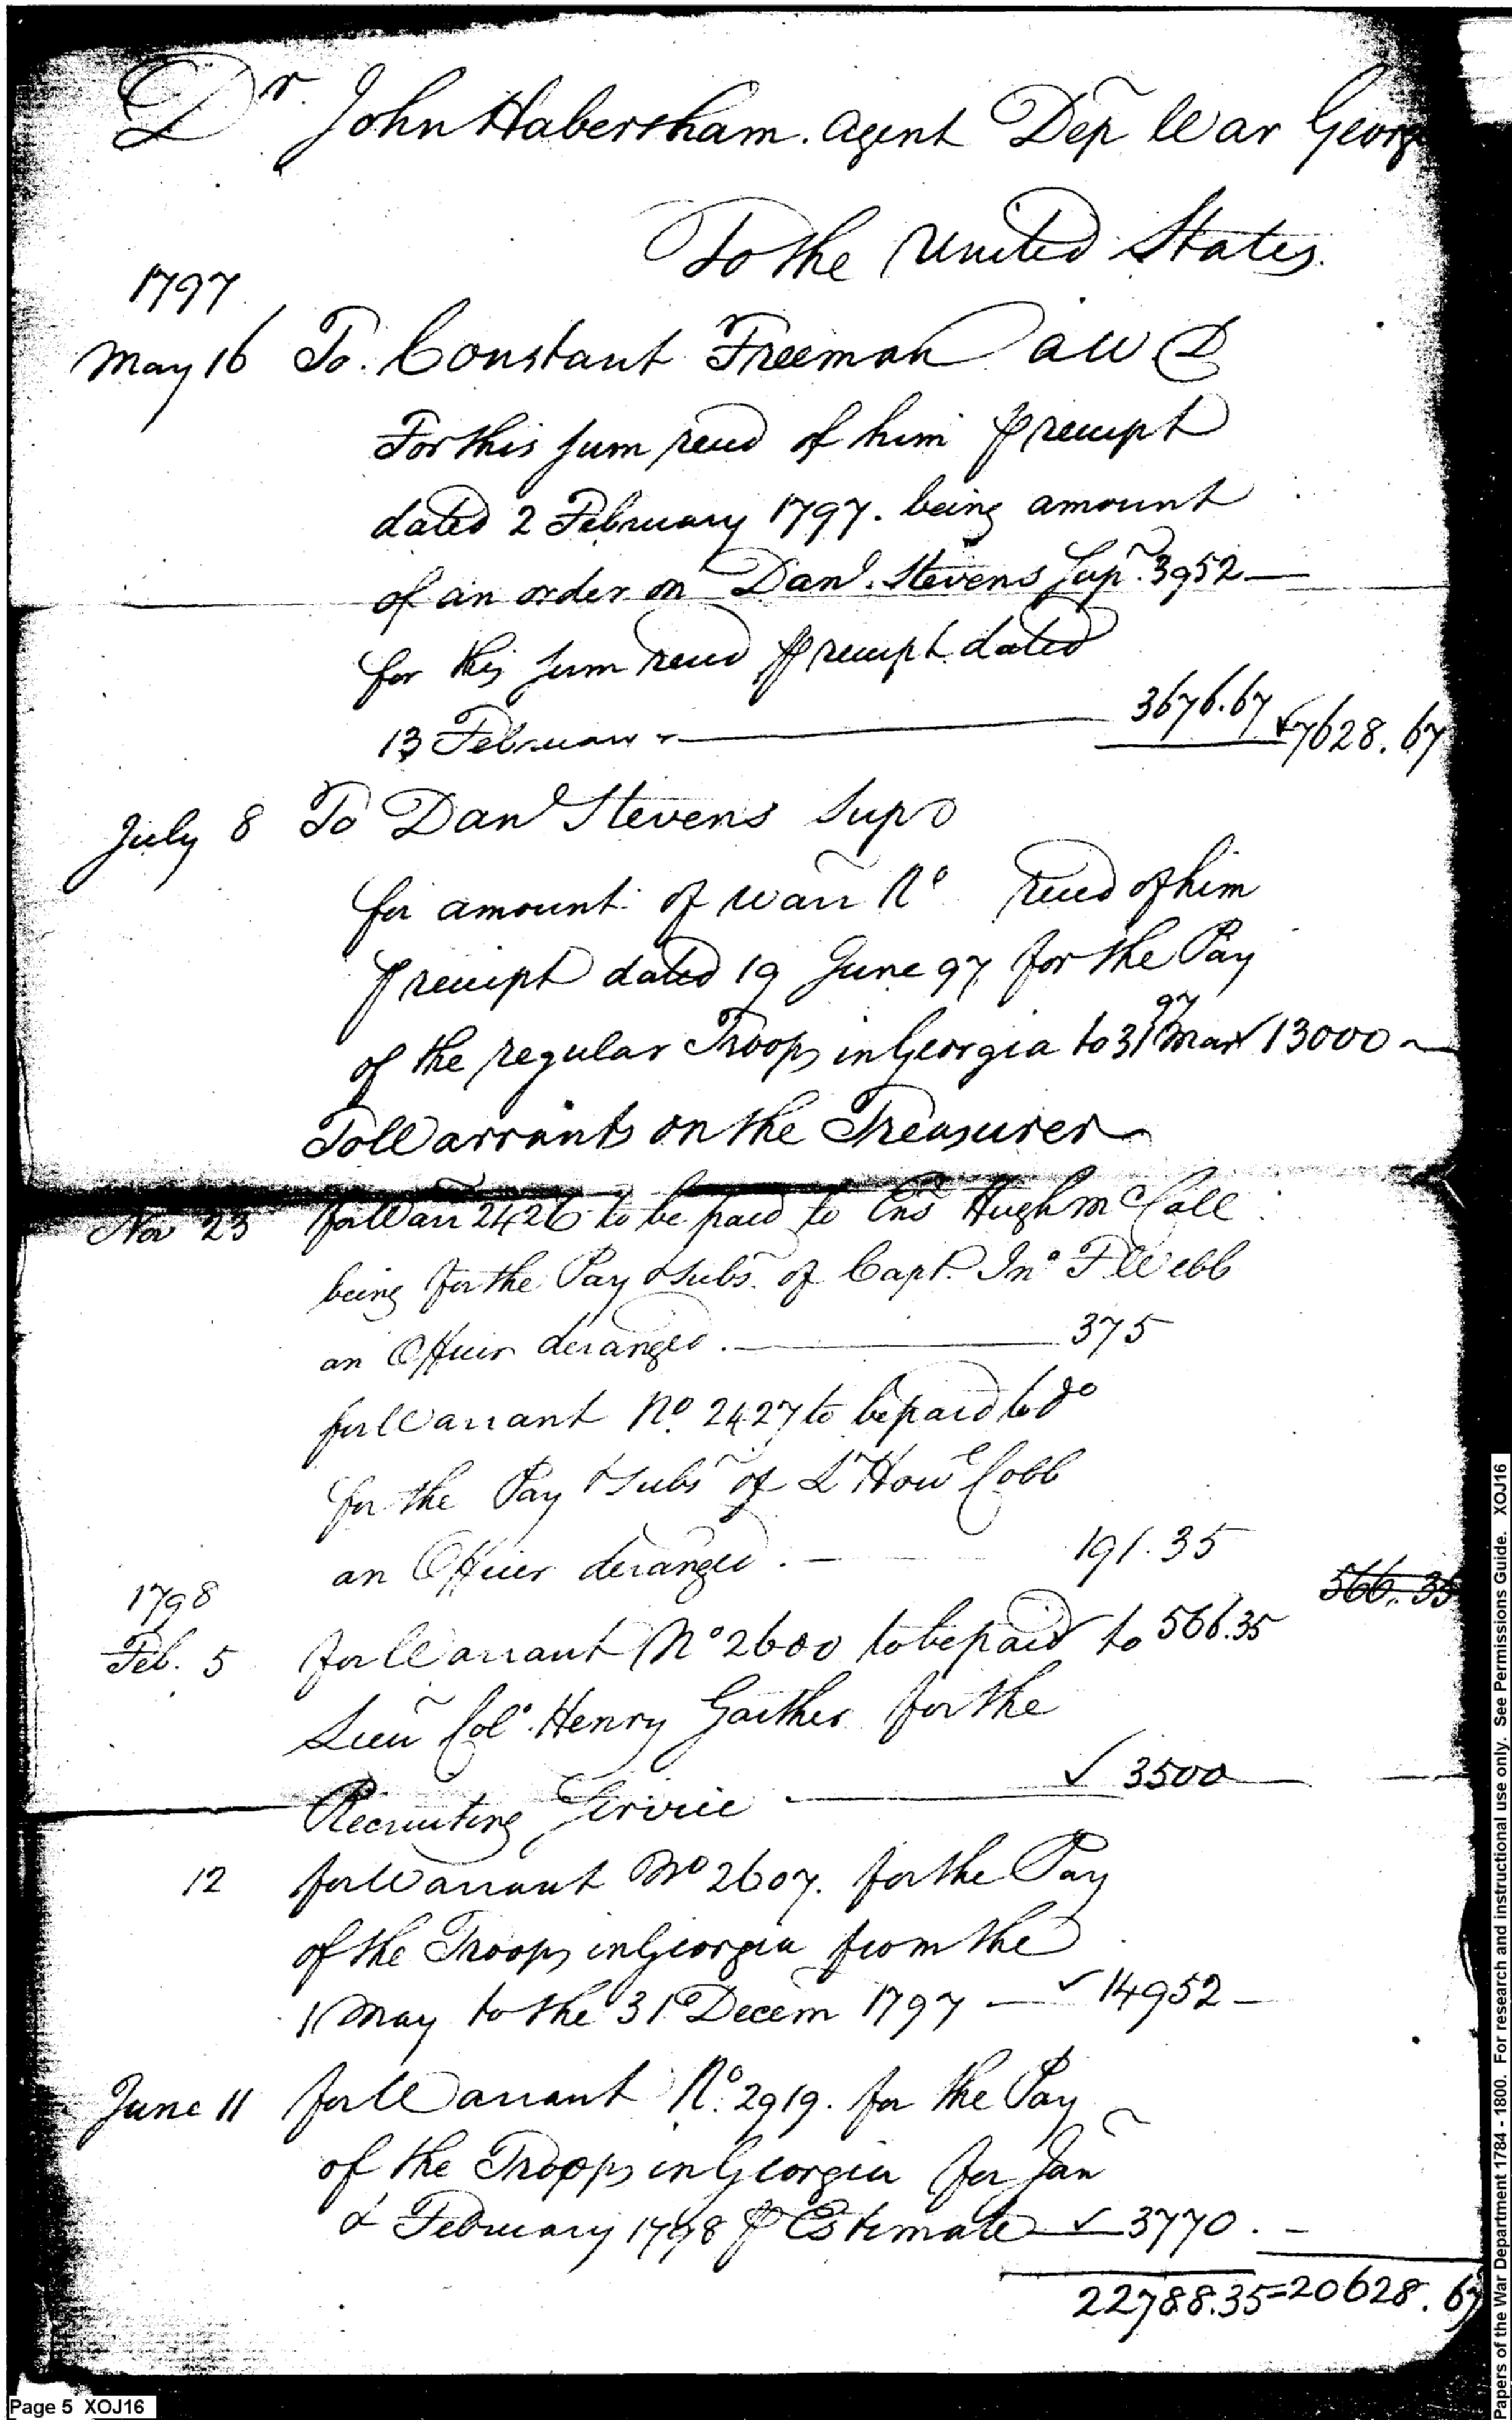 Dr. John Habersham. Agent Dep War Georg
To the United States.
1797
May 16 To. Constant Freeman AWD
For this sum recd of him ⅌ receipt
dated 2 February 1797. being amount
of an order on Danl. Stevens Supr. 3952—
for this sum recd ⅌ receipt dated
13 February — 3676.67 ✓7628.67
July 8 To Danl Stevens Supr
for amount of warr No recd of him
⅌ receipt dated 19 June 97 for the Pay
of the regular Troops in Georgia to 31 Mar 97 ✓ 13000 —
To Warrants on the Treasurer
Nov 23 for Warr 2426 to be paid to Ens Hugh McCall
being for the Pay & subs. of Capt. Jno F Webb
an Officer deranged. — 375
for Warrant No. 2427 to be paid to do
for the Pay & subs of Lt Howl Cobb
an Officer deranged. — 191.35
566.35
1798
Feb. 5 for Warrant No 2600 to be paid to 566.35
Lieu Colo. Henry Gaither for the
Recruiting Service — ✓ 3500 —
12 for Warrant No 2607. for the Pay
of the Troops in Georgia from the
1 May to the 31 Decem 1797 — ✓ 14952 —
June 11 for Warrant No. 2919. for the Pay
of the Troops in Georgia for Jan
& February 1798 ⅌ Estimate ✓ 3770. —
22788.35=20628.67
Page 5 XOJ16
Papers of the War Department 1784 - 1800. For research and instructional use only. See Permissions Guide. XOJ16